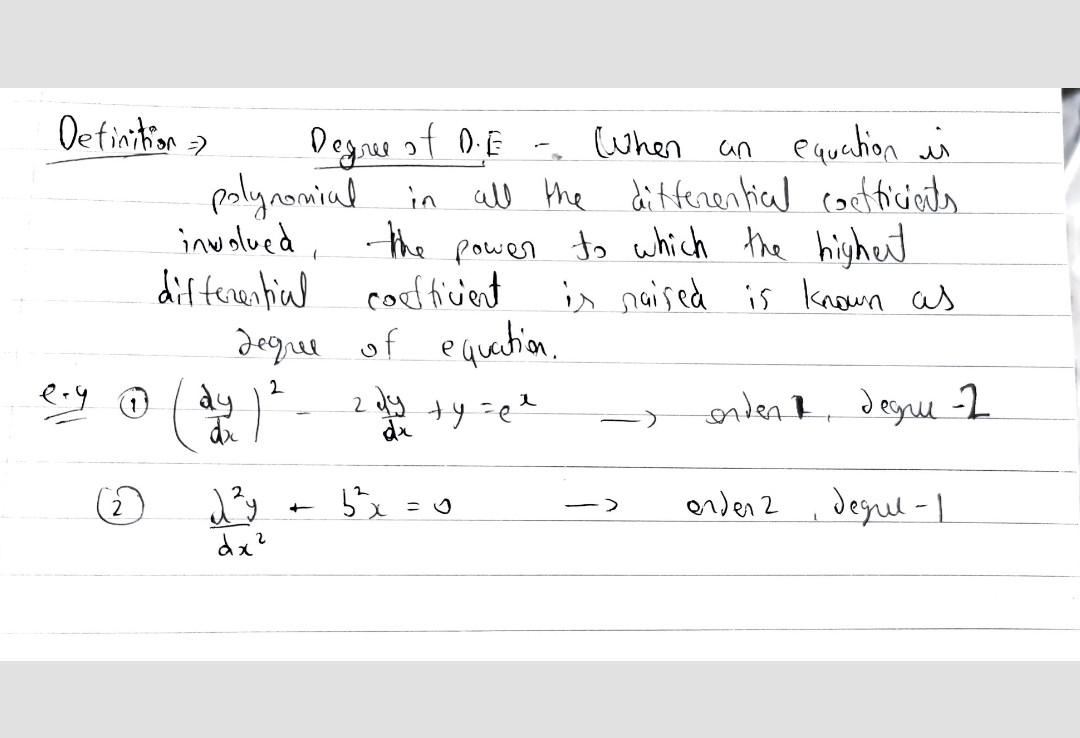 Definition ⇒ Degree of D.E - When an equation is
polynomial in all the differential coefficients
involved, the power to which the highest
differential coefficient is raised is known as
degree of equation.
e.g ① (dy/dx)² - 2 dy/dx + y = eˣ → order 1, degree - 2
② d²y/dx² + b²x = 0 → order 2, degree - 1